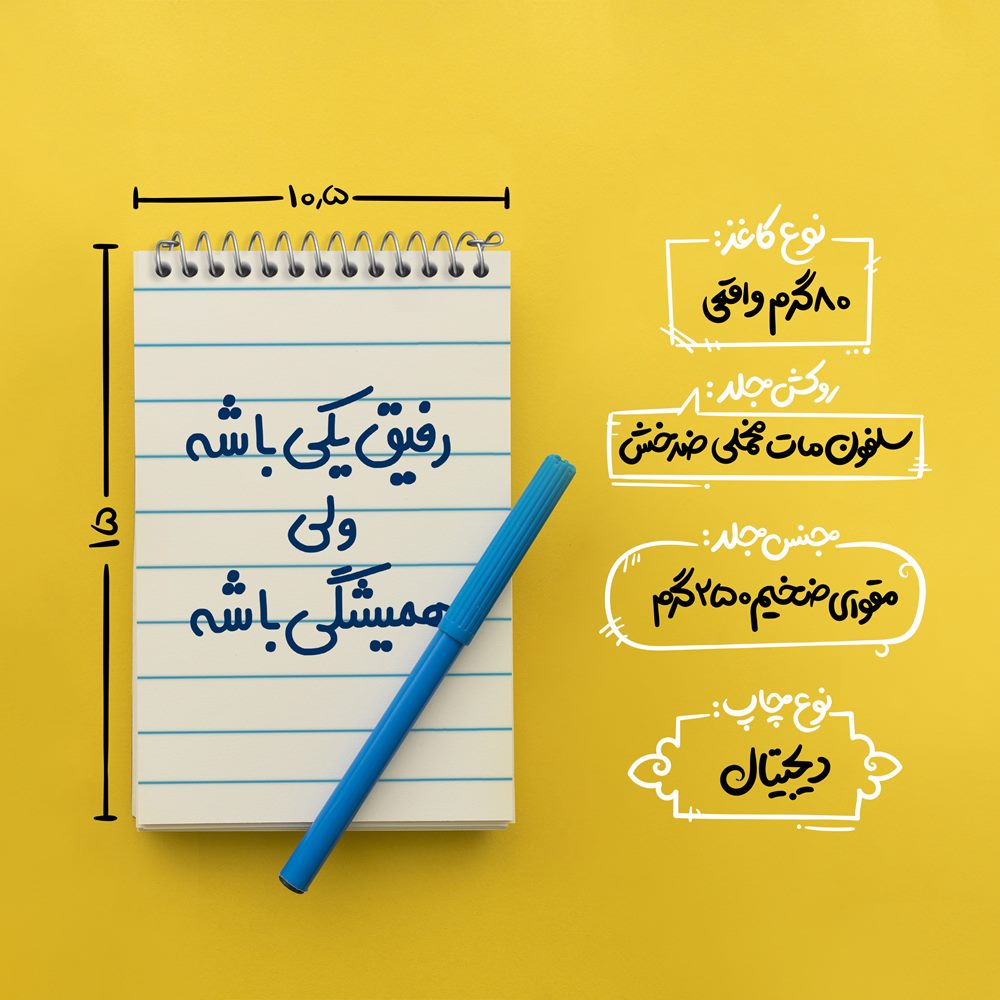 ۱۰٫۵
۱۵
رفیق یکی باشه
ولی
همیشگی باشه
نوع کاغذ:
۸۰گرم واقعی
روکش جلد:
سلفون مات مخملی ضدخش
جنس جلد:
مقوای ضخیم ۲۵۰گرم
نوع چاپ:
دیجیتال